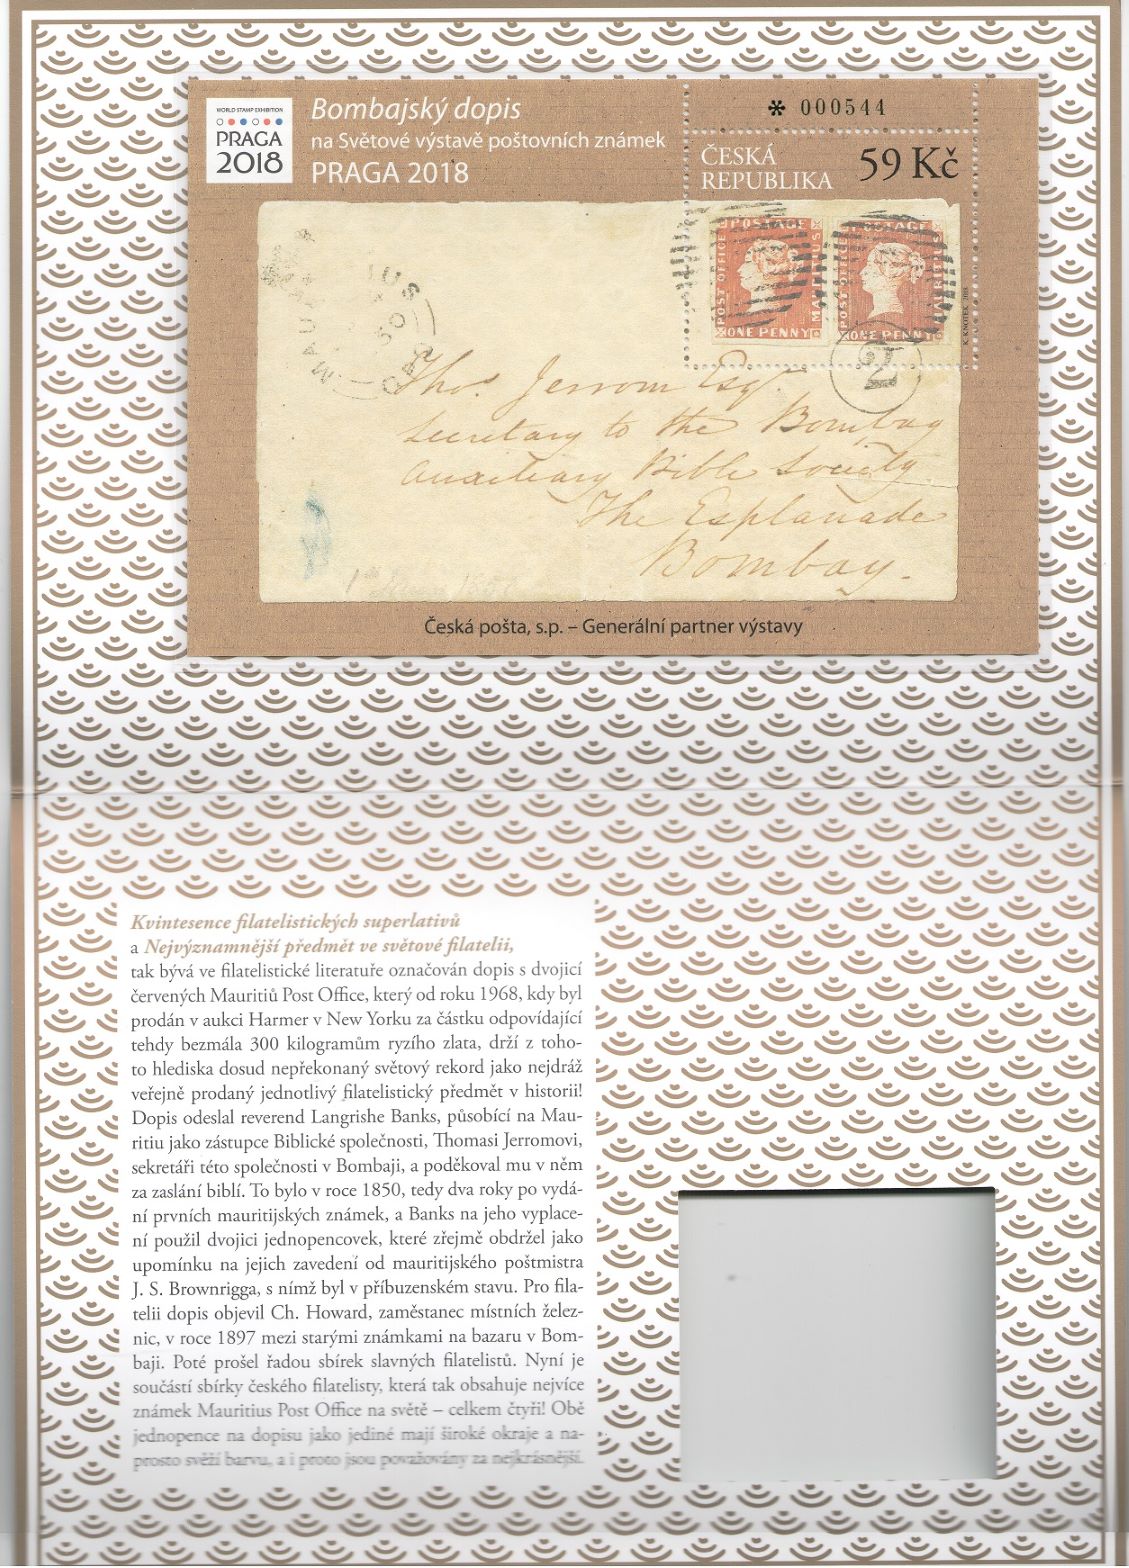 WORLD STAMP EXHIBITION
PRAGA
2018
Bombajský dopis
na Světové výstavě poštovních známek
PRAGA 2018
* 000544
ČESKÁ
REPUBLIKA
59 Kč
POSTAGE
POST OFFICE
MAURITIUS
ONE PENNY
ONE PENNY
Thos. Jerrom Esq.
Secretary to the Bombay
Auxiliary Bible Society
The Esplanade
Bombay.
Česká pošta, s.p. – Generální partner výstavy
Kvintesence filatelistických superlativů
a Nejvýznamnější předmět ve světové filatelii,
tak bývá ve filatelistické literatuře označován dopis s dvojicí
červených Mauritiů Post Office, který od roku 1968, kdy byl
prodán v aukci Harmer v New Yorku za částku odpovídající
tehdy bezmála 300 kilogramům ryzího zlata, drží z toho-
to hlediska dosud nepřekonaný světový rekord jako nejdráž
veřejně prodaný jednotlivý filatelistický předmět v historii!
Dopis odeslal reverend Langrishe Banks, působící na Mau-
ritiu jako zástupce Biblické společnosti, Thomasi Jerromovi,
sekretáři této společnosti v Bombaji, a poděkoval mu v něm
za zaslání biblí. To bylo v roce 1850, tedy dva roky po vydá-
ní prvních mauritijských známek, a Banks na jeho vyplace-
ní použil dvojici jednopencovek, které zřejmě obdržel jako
upomínku na jejich zavedení od mauritijského poštmistra
J. S. Brownrigga, s nímž byl v příbuzenském stavu. Pro fila-
telii dopis objevil Ch. Howard, zaměstanec místních želez-
nic, v roce 1897 mezi starými známkami na bazaru v Bom-
baji. Poté prošel řadou sbírek slavných filatelistů. Nyní je
součástí sbírky českého filatelisty, která tak obsahuje nejvíce
známek Mauritius Post Office na světě – celkem čtyři! Obě
jednopence na dopisu jako jediné mají široké okraje a na-
prosto svěží barvu, a i proto jsou považovány za nejkrásnější.